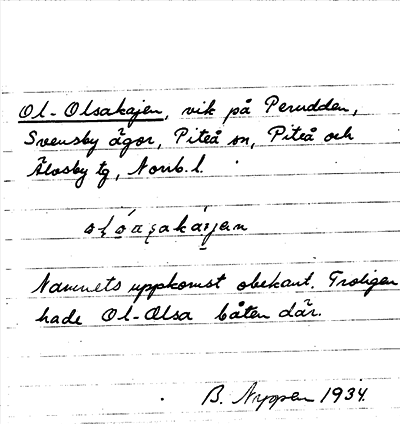 Ol-Olsakajen, vik på Perudden,
Svensby ägor, Piteå sn, Piteå och
Älvsby tg, Norrb. l.
Namnets uppkomst obekant. Troligen
hade Ol-Olsa båten där.
B. Nyppen 1934